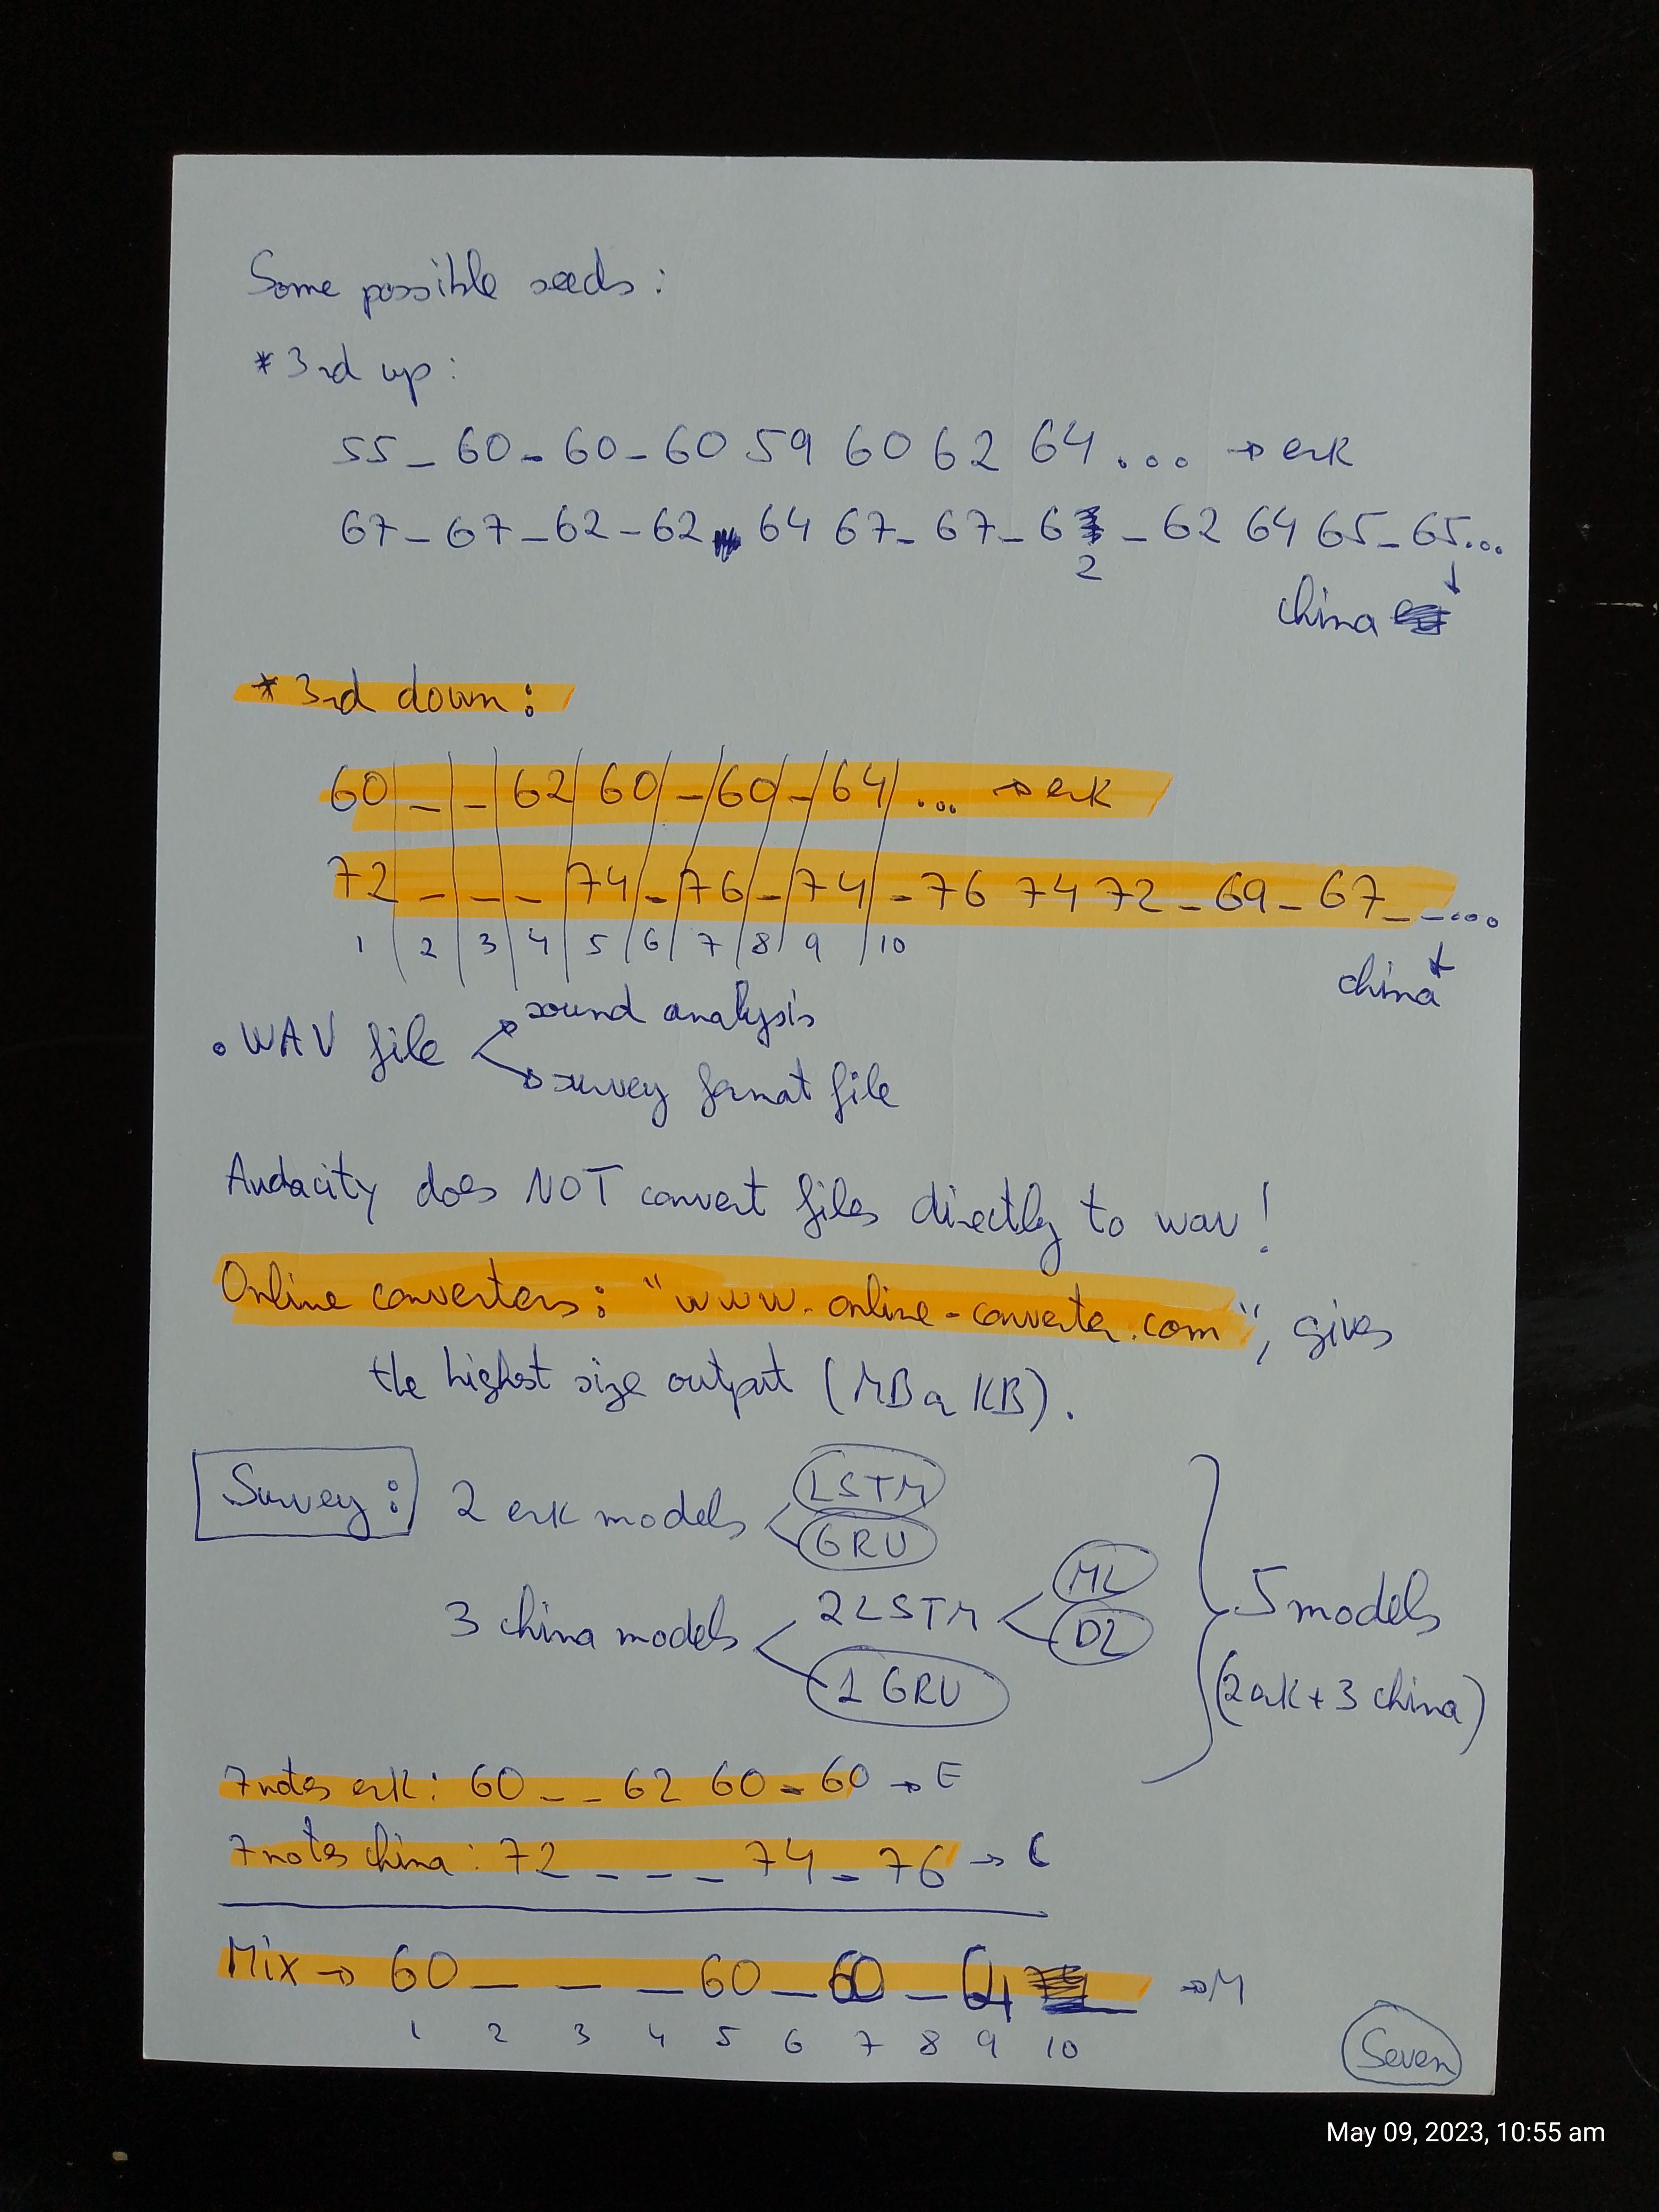 Some possible seeds:
*3rd up:
55 _ 60 - 60 - 60 59 60 62 64 ... → erk
67 - 67 - 62 - 62 64 67 - 67 - 6 - 62 64 65 - 65...
2
china
*3rd down:
60 _ _ 62 60 - 60 - 64 ... → erk
72 _ _ _ 74 - 76 - 74 - 76 74 72 - 69 - 67 _ _ ....
1 2 3 4 5 6 7 8 9 10
china
sound analysis
• WAV file
survey format file
Audacity does NOT convert files directly to wav!
Online converters: "www.online-converter.com", gives
the highest size output (MB a KB).
Survey: 2 erk models
LSTM
GRU
3 china models
2 LSTM
ML
DL
1 GRU
5 models
(2 erk + 3 china)
7 notes erk: 60 _ _ 62 60 - 60 → E
7 notes china: 72 _ _ _ 74 - 76 → C
Mix → 60 _ _ _ 60 _ 60 _ 64 _ → M
1 2 3 4 5 6 7 8 9 10
Seven
May 09, 2023, 10:55 am